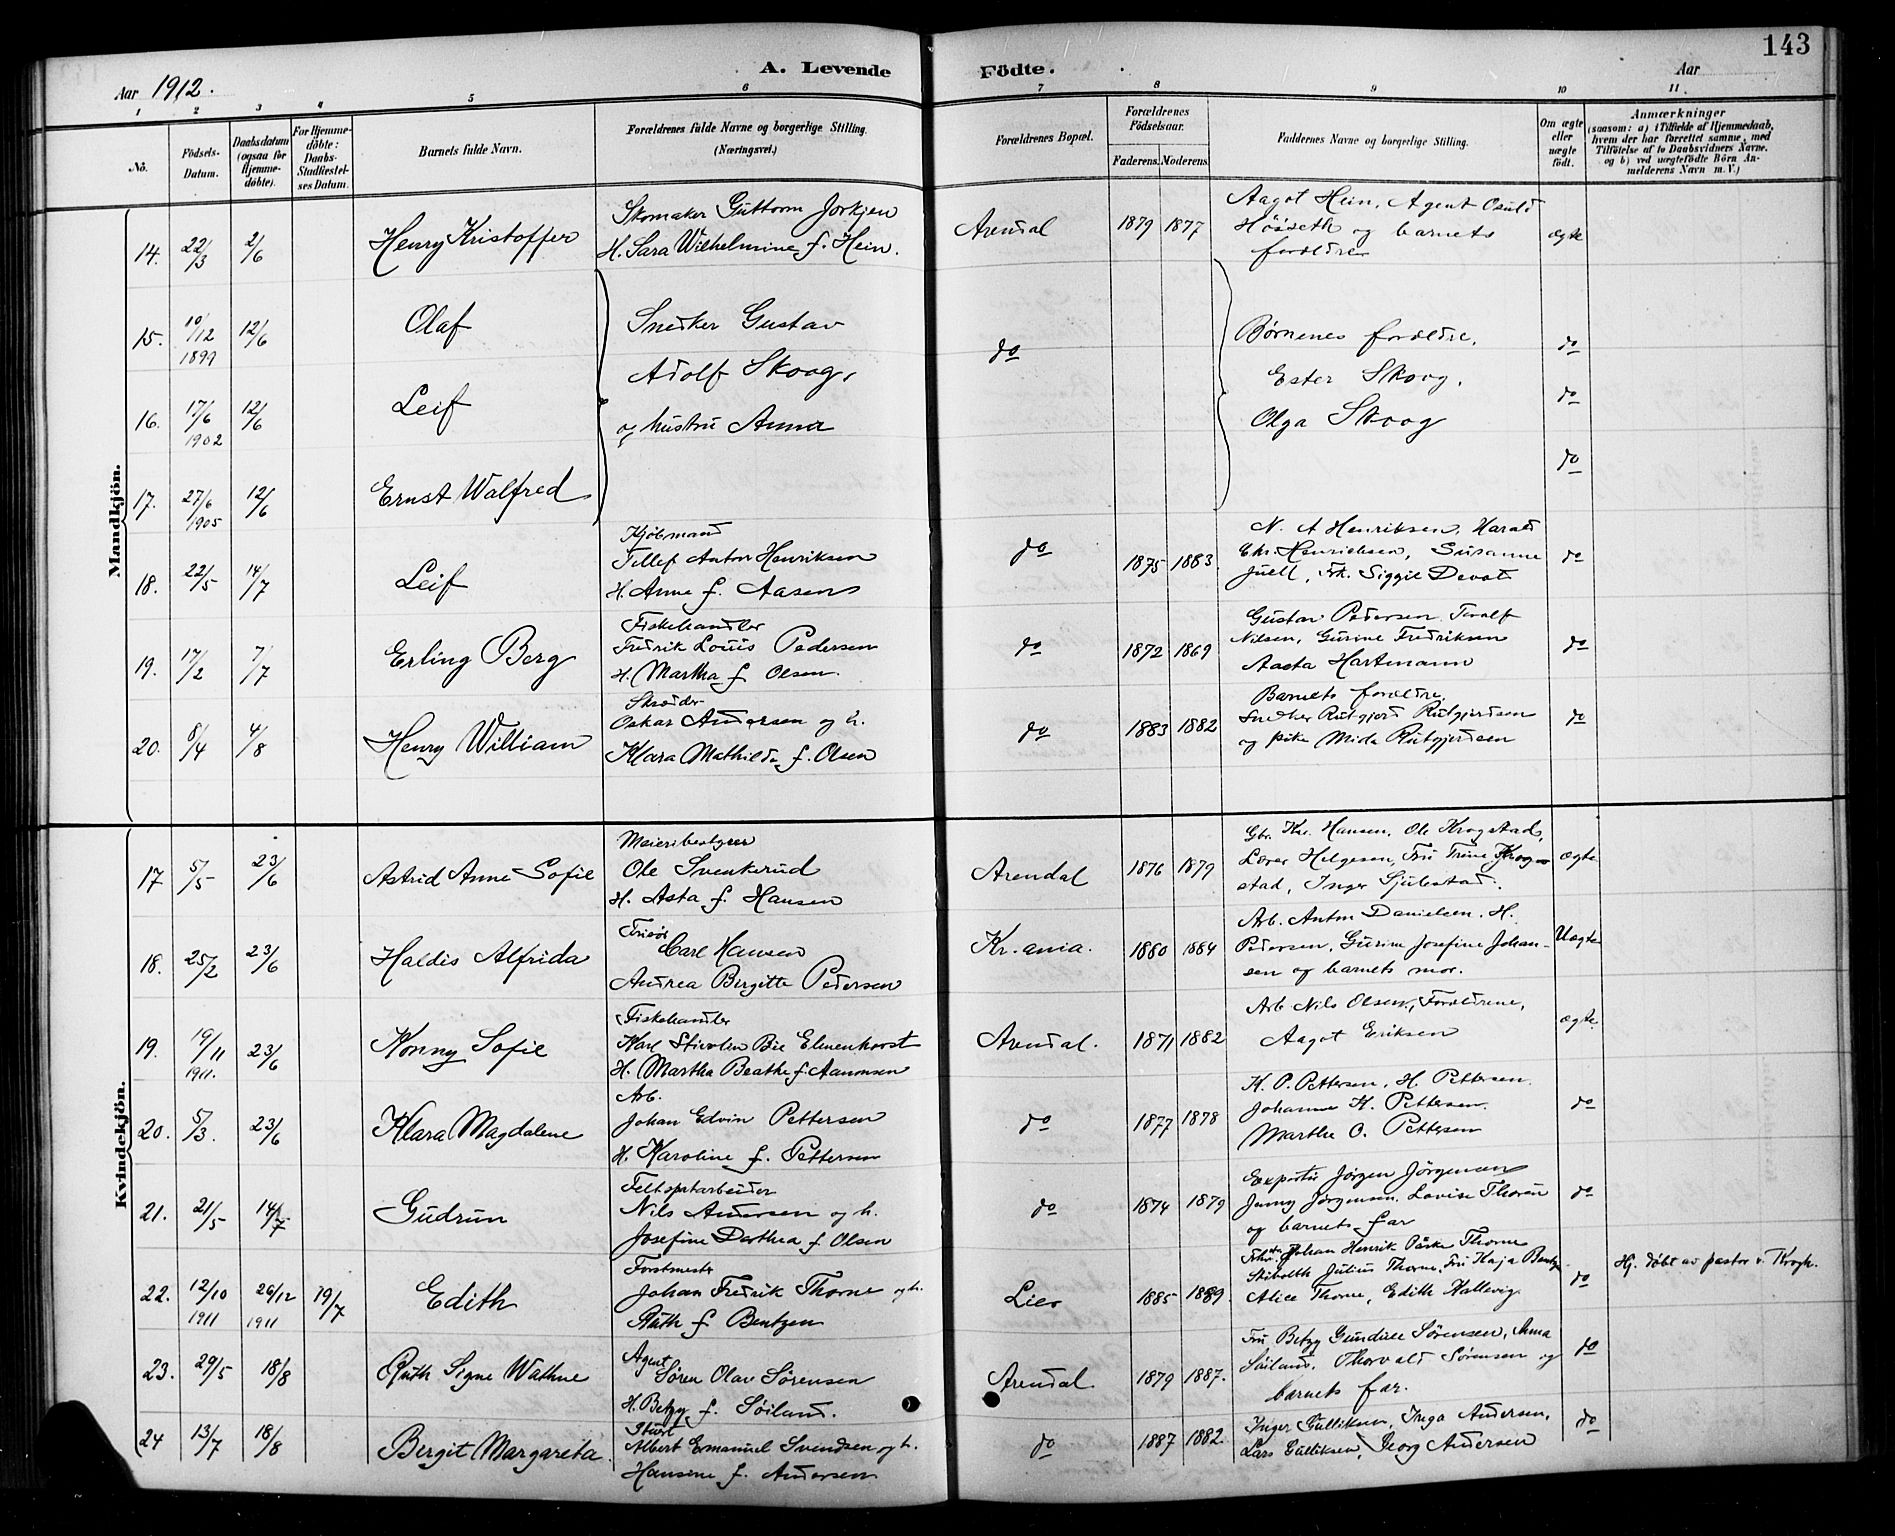 143
Aar 1912. A. Levende Födte. Aar
1 2 3 4 5 6 7 8 9 10 11.
No.
Födsels-Datum.
Daabsdatum (ogsaa for Hjemme-döbte).
For Hjemme-döbte: Daabs-Stadfæstel-ses Datum.
Barnets fulde Navn.
Forældrenes fulde Navne og borgerlige Stilling. (Næringsvei.)
Forældrenes Bopæl.
Forældrenes Födselsaar.
Faderens. Moderens.
Faddernes Navne og borgerlige Stilling.
Om ægte eller uægte födt.
Anmærkninger
(saasom: a) i Tilfælde af Hjemmedaab, hvem der har forrettet samme, med Tilföielse af to Daabsvidners Navne. og b) ved uægtefödte Börn An-melderens Navn m. V.)
Mandkjön.
14. 22/3 2/6 Henry Kristoffer
Skomaker Guttorm Jorkjen
H. Sara Wilhelmine f. Hein.
Arendal 1879 1877
Aagot Hein, Agent Osuld
Høiseth og barnets
forældre
ægte
15. 10/12 1899 12/6 Olaf
16. 17/6 1902 12/6 Leif
17. 27/6 1905 12/6 Ernst Walfred
Snedker Gustav
Adolf Skoog,
og hustru Anna
do
Børnenes forældre,
Ester Skoog,
Olga Skoog
do
do
do
18. 22/5 14/7 Leif
Kjøbmand
Tellef Anton Henriksen
H. Anne f. Aasen
do 1875 1883.
N. A Henriksen, Harald
Chr. Henriksen, Susanne
Juell, Frk. Siggil Devot
do
19. 17/2 7/7 Erling Berg
Fiskehandler
Fredrik Louis Pedersen
H. Martha f Olsen.
do 1872 1869
Gustav Pedersen, Toralf
Nilsen, Gurine Fredriksen
Aasta Hartmann
do
20. 8/4 4/8 Henry William
Skrædder
Oskar Andersen og h.
Klara Mathilde f. Olsen
do 1883 1882
Barnets forældre,
Snedker Rutgjerd Rutgjerdsen
og pike Mida Rutgjerdsen
do
Kvindekjön.
17 5/5 23/6 Astrid Anne Sofie
Meieribestyrer
Ole Svenkerud
H. Asta f. Hansen
Arendal 1876 1879
Gbr. Kr. Hansen, Ole Krogstad,
Lærer Helgesen, Fru Trine Krog-
stad, Inger Sjulestad.
ægte
18. 25/2 23/6 Haldis Alfrida
Frisør
Carl Hansen
Andrea Bergitte Pedersen
Kr.ania. 1880 1884
Arb. Anton Danielsen, H.
Pedersen, Gurine Josefine Johan-
sen og barnets mor.
Uægte
19. 19/11 1911. 23/6 Konny Sofie
Fiskehandler
Karl Stivolin Bie Elmenhorst
H. Martha Beathe f. Aanonsen
Arendal. 1871 1882
Arb Nils Olsen, Forældrene,
Aagot Eriksen
ægte
20. 5/3. 23/6 Klara Magdalene
Arb.
Johan Edvin Pettersen
H. Karoline f. Pettersen
do 1877 1878
K. P. Pettersen, H. Pettersen
Johanne K. Pettersen.
Marthe O. Pettersen
do
21. 21/5 14/7 Gudrun
Feltspatarbeider
Nils Andersen og h.
Josefine Dorthea f Olsen
do 1874 1879
Expeditør Jørgen Jörgensen
Jenny Jørgensen. Lovise Thoren
og barnets far
do
22. 12/10 1911 26/12 1911 19/7 Edith
Forstmester
Johan Fredrik Thorne og h.
Ruth f Bentzen
Lier 1885 1889
Johan Henrik Thorne
Julius Thorne, Fru Kaja Bentzen
Alice Thorne, Edith Hallevig
do
Hj. døbt av pastor v. Krogh.
23. 29/5 18/8 Ruth Signe Wathne
Agent
Sören Olav Sörensen
H. Betzy f. Söiland.
Arendal 1879 1887.
Fru Betzy Gundile Sörensen, Anna
Söiland, Thorvald Sörensen og
barnets far.
do
24 13/7 18/8 Bergit Margareta.
Stuert
Albert Emanuel Svendsen og h.
Hansine f. Andersen
do 1887 1882.
Inger Gulliksen, Inga Andersen,
Lars Gulliksen, Georg Andersen
do